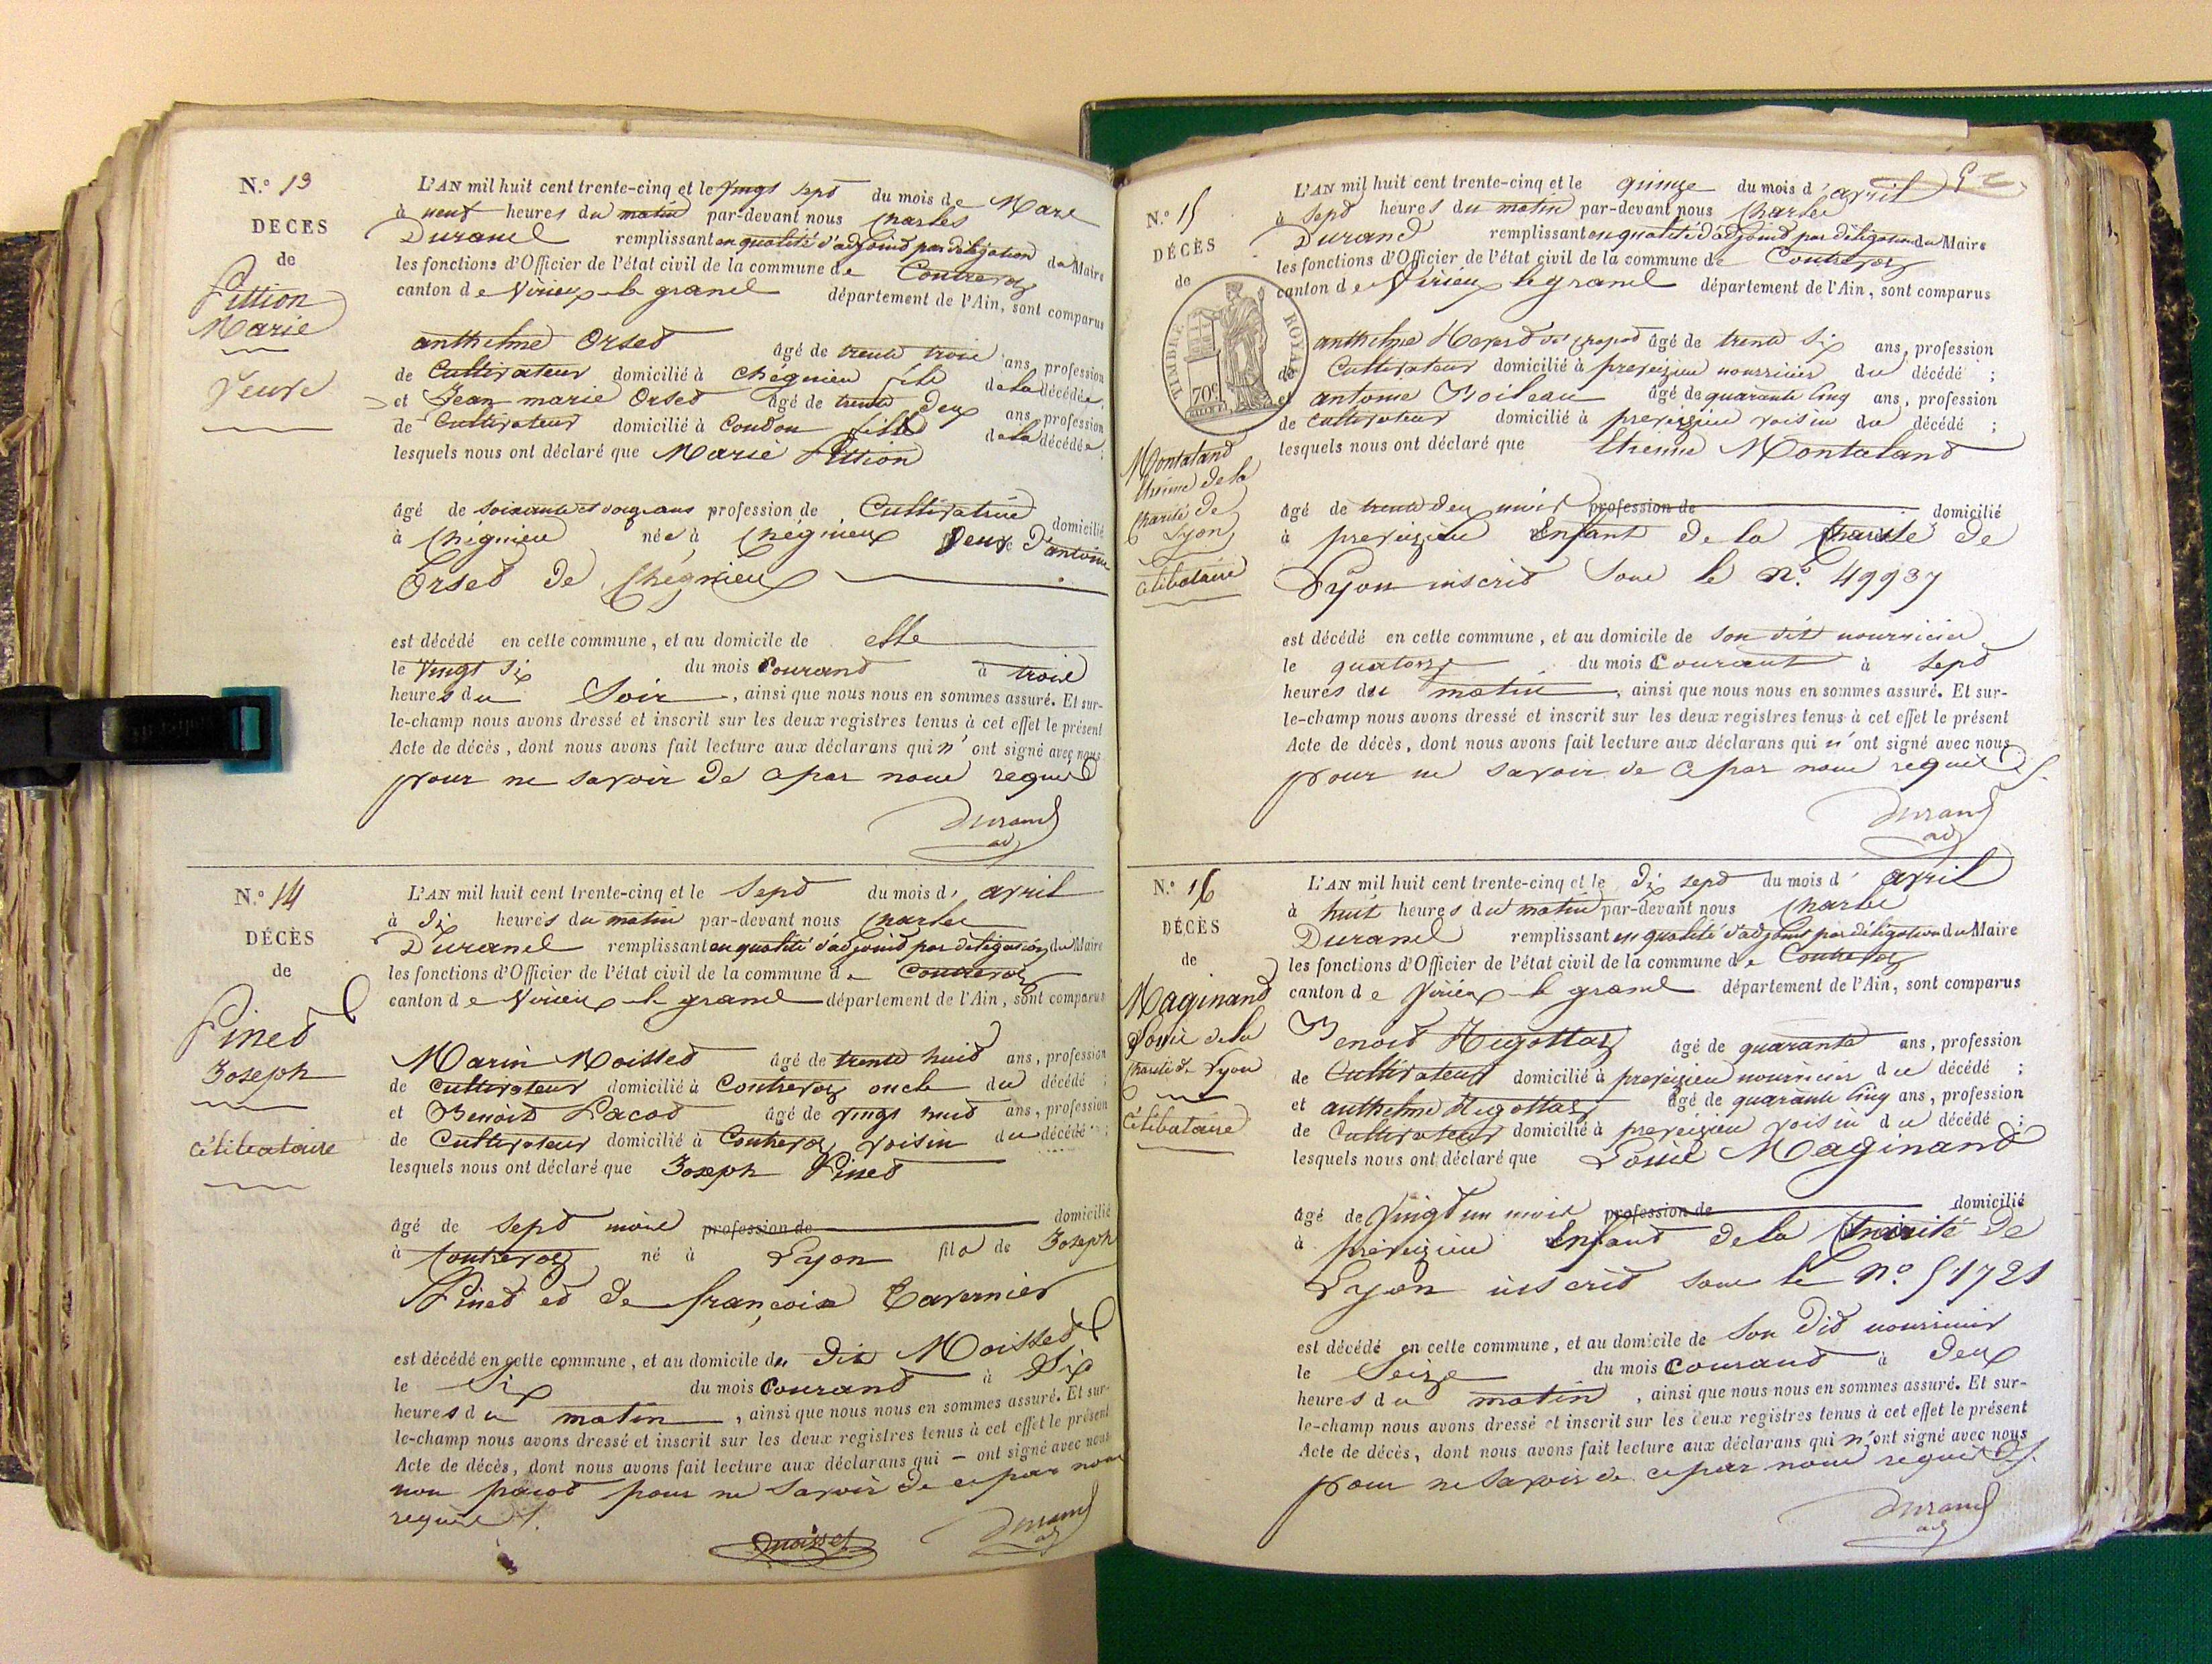 N.º 13
DÉCES
de
Pittion
Marie
Veuve
L'AN mil huit cent trente-cinq et le vingt sept du mois de Mars
à neuf heures du matin par-devant nous Charles
Durand remplissant en qualité d'adjoind par délégation du Maire
les fonctions d'Officier de l'état civil de la commune de Contrevoz
canton de Virieux le grand département de l'Ain, sont comparus
anthelme Orset âgé de trente trois ans, profession
de Cultivateur domicilié à Chégnieu fils de la décédée;
et Jean marie Orset âgé de trente deux ans, profession
de Cultivateur domicilié à Coudon fils de la décédée;
lesquels nous ont déclaré que Marie Pittion
âgé de soixante et onze ans profession de Cultivatrice domicilié
à Chégnieu née à Chégnieux Veuve d'antoine
Orset de Chégnieux
est décédé en cette commune, et au domicile de elle
le Vingt Six du mois Courand à trois
heures du Soir, ainsi que nous nous en sommes assuré. Et sur-
le-champ nous avons dressé et inscrit sur les deux registres tenus à cet effet le présent
Acte de décès, dont nous avons fait lecture aux déclarans qui n'ont signé avec nous
pour ne savoir de ce par nous requis
Durand
ad
N.º 14
DÉCÈS
de
Pinet
Joseph
célibataire
L'AN mil huit cent trente-cinq et le Sept du mois d'avril
à dix heures du matin par-devant nous Charles
Durand remplissant en qualité d'adjoind par délégation du Maire
les fonctions d'Officier de l'état civil de la commune de Contrevoz
canton de Virieux le grand département de l'Ain, sont comparus
Marin Moisset âgé de trente huit ans, profession
de Cultivateur domicilié à Contrevoz oncle du décédé;
et Benoit Pacod âgé de vingt huit ans, profession
de Cultivateur domicilié à Contrevoz voisin du décédé;
lesquels nous ont déclaré que Joseph Pinet
âgé de Sept mois profession de domicilié
à Contrevoz né à Lyon fils de Joseph
Pinet et de françoise Tavernier
est décédé en cette commune, et au domicile du dit Moisset
le Six du mois Courand à Six
heures du matin, ainsi que nous nous en sommes assuré. Et sur-
le-champ nous avons dressé et inscrit sur les deux registres tenus à cet effet le présent
Acte de décès, dont nous avons fait lecture aux déclarans qui – ont signé avec nous
non pacod pour ne savoir de ce par nous
requis
moisset
Durand
ad
N.º 15
DÉCÈS
de
TIMBRE ROYAL
70c
Montaland
Etienne de la
Charité de
Lyon
célibataire
L'AN mil huit cent trente-cinq et le quinze du mois d'avril
à Sept heures du matin par-devant nous Charles
Durand remplissant en qualité d'adjoind par délégation du Maire
les fonctions d'Officier de l'état civil de la commune de Contrevoz
canton de Virieux le grand département de l'Ain, sont comparus
anthelme âgé de trente Six ans, profession
de Cultivateur domicilié à preveizieu nourricier du décédé;
et antoine Boileau âgé de quarante Cinq ans, profession
de cultivateur domicilié à preveizieu voisin du décédé;
lesquels nous ont déclaré que Etienne Montaland
âgé de trente deux mois profession de domicilié
à preveizieu Enfant de la Charité de
Lyon inscrit Sous le n.º 49937
est décédé en cette commune, et au domicile de Son dit nourricier
le quatorze du mois Courant à Sept
heures du matin, ainsi que nous nous en sommes assuré. Et sur-
le-champ nous avons dressé et inscrit sur les deux registres tenus à cet effet le présent
Acte de décès, dont nous avons fait lecture aux déclarans qui n'ont signé avec nous
pour ne savoir de ce par nous requis
Durand
ad
N.º 16
DÉCÈS
de
Maginand
Louis de la
charité de Lyon
célibataire
L'AN mil huit cent trente-cinq et le dix sept du mois d'avril
à huit heures du matin par-devant nous Charles
Durand remplissant en qualité d'adjoint par délégation du Maire
les fonctions d'Officier de l'état civil de la commune de Contrevoz
canton de Virieux le grand département de l'Ain, sont comparus
Benoit Hugottaz âgé de quarante ans, profession
de Cultivateur domicilié à preveizieu nourricier du décédé;
et anthelme Hugottaz âgé de quarante Cinq ans, profession
de Cultivateur domicilié à preveizieu voisin du décédé;
lesquels nous ont déclaré que Louis Maginand
âgé de Vingt un mois profession de domicilié
à preveizieu Enfant de la Charité de
Lyon inscrit sous le n.º 51721
est décédé en cette commune, et au domicile de Son dit nourricier
le Seize du mois Courand à deux
heures du matin, ainsi que nous nous en sommes assuré. Et sur-
le-champ nous avons dressé et inscrit sur les deux registres tenus à cet effet le présent
Acte de décès, dont nous avons fait lecture aux déclarans qui n'ont signé avec nous
pour ne Savoir de ce par nous requis
Durand
ad